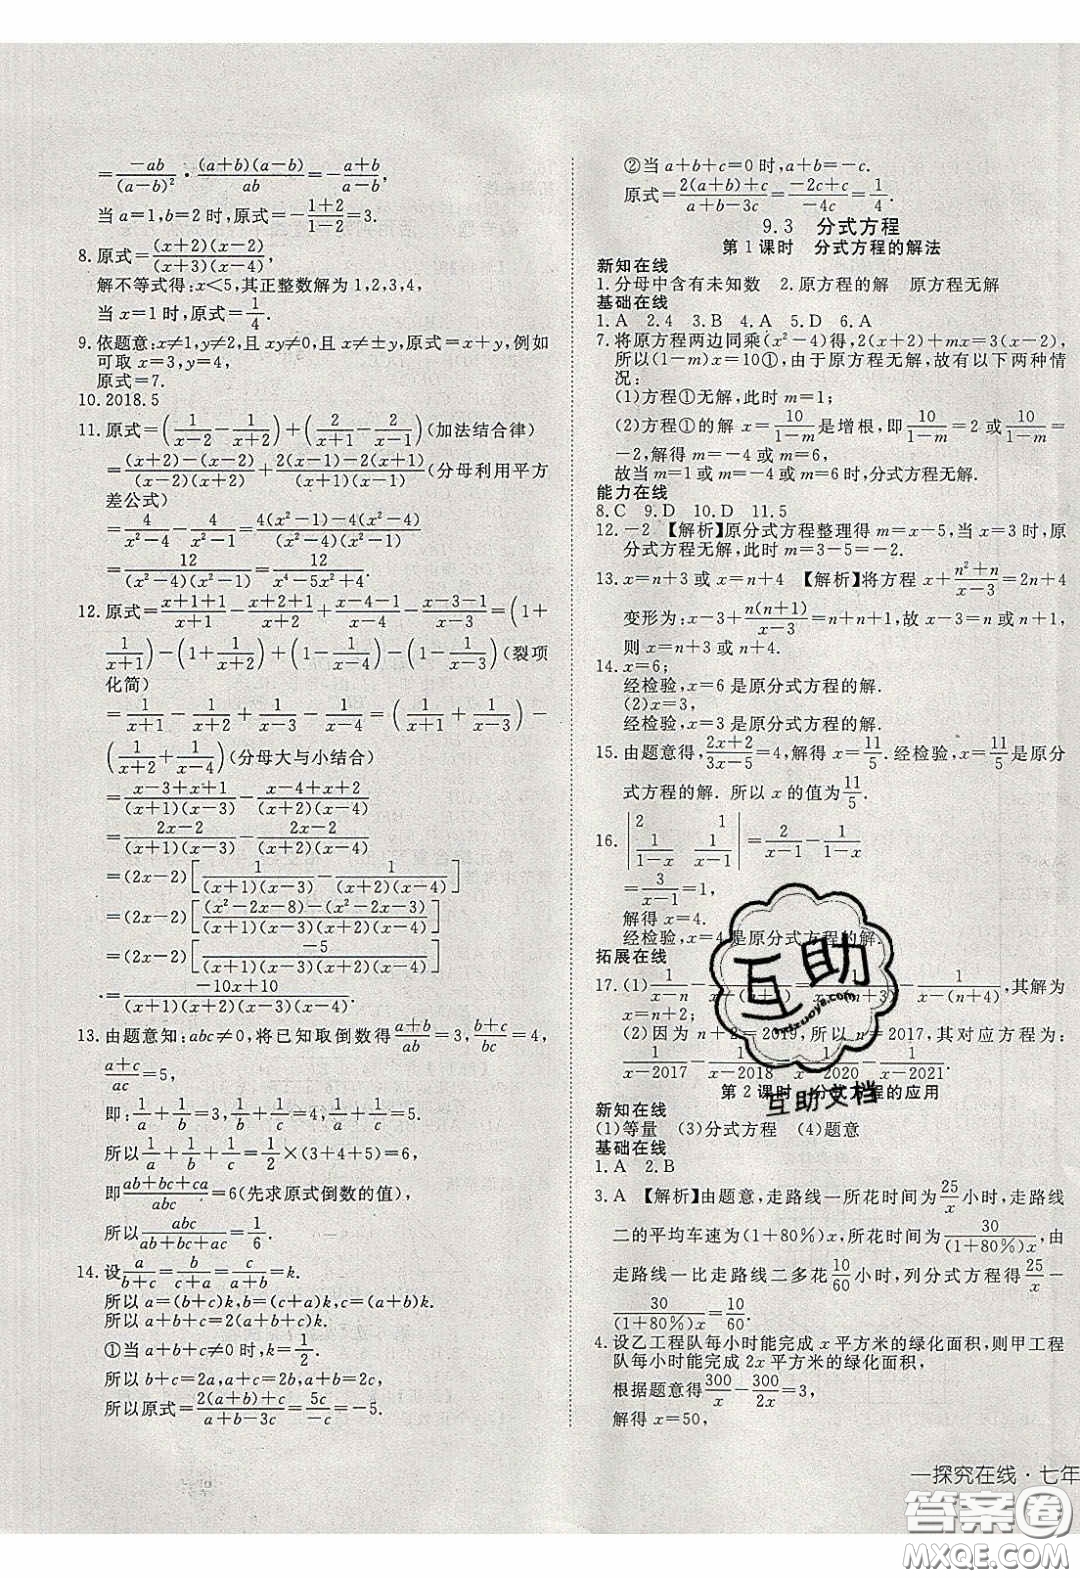 =\frac{-ab}{(a-b)^2}·\frac{(a+b)(a-b)}{ab}=-\frac{a+b}{a-b},
当 a=1,b=2 时,原式=-\frac{1+2}{1-2}=3.
8. 原式=\frac{(x+2)(x-2)}{(x+3)(x-2)},
解不等式得:x<5,其正整数解为 1,2,3,4,
当 x=1 时,原式=\frac{1}{4}.
9. 依题意:x≠1,y≠2,且 xy≠0,且 x≠±y,原式=x+y,例如
可取 x=3,y=4,
原式=7.
10. 2018.5
11. 原式=(\frac{1}{x-2}-\frac{1}{x+2})+(\frac{2}{x+1}-\frac{2}{x-1})(加法结合律)
=\frac{(x+2)-(x-2)}{(x-2)(x+2)}+\frac{2(x-1)-2(x+1)}{(x+1)(x-1)}(分母利用平方
差公式)
=\frac{4}{x^2-4}-\frac{4}{x^2-1}=\frac{4(x^2-1)-4(x^2-4)}{(x^2-4)(x^2-1)}
=\frac{12}{(x^2-4)(x^2-1)}=\frac{12}{x^4-5x^2+4}.
12. 原式=\frac{x+1+1}{x+1}-\frac{x+2+1}{x+2}+\frac{x-4-1}{x-4}-\frac{x-3-1}{x-3}=(1+
\frac{1}{x+1})-(1+\frac{1}{x+2})+(1-\frac{1}{x-4})-(1-\frac{1}{x-3})(裂项
化简)
=\frac{1}{x+1}-\frac{1}{x+2}+\frac{1}{x-3}-\frac{1}{x-4}=(\frac{1}{x+1}+\frac{1}{x-3})-
(\frac{1}{x+2}+\frac{1}{x-4})(分母大与小结合)
=\frac{x-3+x+1}{(x+1)(x-3)}-\frac{x-4+x+2}{(x+2)(x-4)}
=\frac{2x-2}{(x+1)(x-3)}-\frac{2x-2}{(x+2)(x-4)}
=(2x-2)[\frac{1}{(x+1)(x-3)}-\frac{1}{(x+2)(x-4)}]
=(2x-2)[\frac{(x^2-2x-8)-(x^2-2x-3)}{(x+1)(x-3)(x+2)(x-4)}]
=(2x-2)[\frac{-5}{(x+1)(x-3)(x+2)(x-4)}]
=\frac{-10x+10}{(x+1)(x+2)(x-3)(x-4)}.
13. 由题意知:abc≠0,将已知取倒数得\frac{a+b}{ab}=3,\frac{b+c}{bc}=4,
\frac{a+c}{ac}=5,
即:\frac{1}{a}+\frac{1}{b}=3,\frac{1}{b}+\frac{1}{c}=4,\frac{1}{c}+\frac{1}{a}=5.
所以\frac{1}{a}+\frac{1}{b}+\frac{1}{c}=\frac{1}{2}×(3+4+5)=6,
即\frac{ab+bc+ca}{abc}=6(先求原式倒数的值),
所以\frac{abc}{ab+bc+ac}=\frac{1}{6}.
14. 设\frac{a}{b+c}=\frac{b}{c+a}=\frac{c}{a+b}=k.
所以 a=(b+c)k,b=(c+a)k,c=(a+b)k.
所以 a+b+c=2(a+b+c)k.
①当 a+b+c≠0 时,k=\frac{1}{2}.
所以 b+c=2a,a+c=2b,a+b=2c.
所以原式=\frac{2(a+b)+c}{a+b-3c}=\frac{5c}{-c}=-5.
②当 a+b+c=0 时,a+b=-c.
原式=\frac{2(a+b)+c}{a+b-3c}=\frac{-2c+c}{-4c}=\frac{1}{4}.
9.3 分式方程
第 1 课时 分式方程的解法
新知在线
1. 分母中含有未知数 2. 原方程的解 原方程无解
基础在线
1. A 2. 4 3. B 4. A 5. D 6. A
7. 将原方程两边同乘(x^2-4)得,2(x+2)+mx=3(x-2),
所以(1-m)x=10①,由于原方程无解,故有以下两种情
况:
(1)方程①无解,此时 m=1;
(2)方程①的解 x=\frac{10}{1-m}是增根,即\frac{10}{1-m}=2 或\frac{10}{1-m}=
-2,解得 m=-4 或 m=6.
故当 m=1 或 m=-4 或 m=6 时,分式方程无解.
能力在线
8. C 9. D 10. D 11. 5
12. -2 【解析】原分式方程整理得 m=x-5,当 x=3 时,原
分式方程无解,此时 m=3-5=-2.
13. x=n+3 或 x=n+4 【解析】将方程 x+\frac{n^2+n}{x-3}=2n+4
变形为:x-3+\frac{n(n+1)}{x-3}=n+n+1,故 x-3=n 或 n+1,
则 x=n+3 或 n+4.
14. x=6;
经检验,x=6 是原分式方程的解.
(2)x=3,
经检验,x=3 是原分式方程的解.
15. 由题意得,\frac{2x+2}{3x-5}=4,解得 x=\frac{11}{5}.经检验,x=\frac{11}{5}是原分
式方程的解. 所以 x 的值为\frac{11}{5}.
16. |2 1; \frac{1}{1-x} \frac{1}{x-1}|=\frac{2}{x-1}-\frac{1}{1-x}
=\frac{3}{x-1}=1,
解得 x=4.
经检验,x=4 是原分式方程的解.
拓展在线
17. (1)\frac{1}{x-n}-\frac{1}{x-(n+1)}=\frac{1}{x-(n+3)}-\frac{1}{x-(n+4)},其解为
x=n+2;
(2)因为 n+2=2019,所以 n=2017,其对应方程为:
\frac{1}{x-2017}-\frac{1}{x-2018}=\frac{1}{x-2020}-\frac{1}{x-2021}.
第 2 课时 分式方程的应用
新知在线
(1)等量 (3)分式方程 (4)题意
基础在线
1. A 2. B
3. A 【解析】由题意,走路线一所花时间为\frac{25}{x}小时,走路线
二的平均车速为(1+80%)x,所花时间为\frac{30}{(1+80%)x},由
走路线一比走路线二多花\frac{10}{60}小时,列分式方程得\frac{25}{x}-
\frac{30}{(1+80%)x}=\frac{10}{60}.
4. 设乙工程队每小时能完成 x 平方米的绿化面积,则甲工程
队每小时能完成 2x 平方米的绿化面积,
根据题意得\frac{300}{x}-\frac{300}{2x}=3,
解得 x=50,
互助
互助文档
一探究在线·七年
答案圈
MXQE.COM